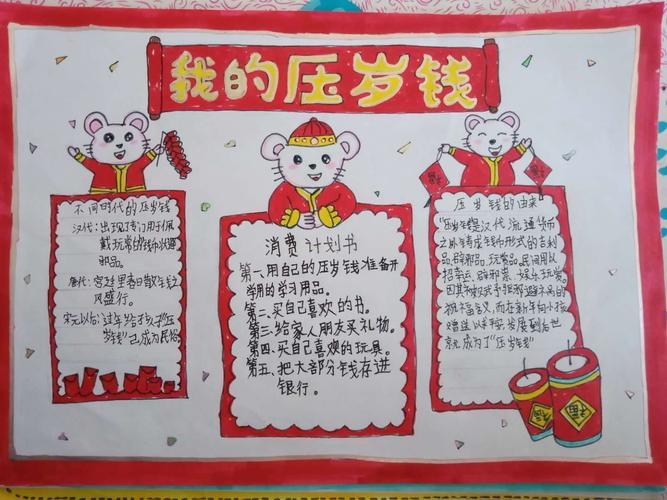 我的压岁钱
不同时代的压岁钱
汉代：出现了专门用于佩
戴玩赏的钱币状避
邪品。
唐代：宫廷里春日散钱之
风盛行。
宋元以后：过年给孩子"压
岁钱"已成为民俗
消费计划书
第一、用自己的压岁钱准备开
学用的学习用品。
第二、买自己喜欢的书。
第三、给家人朋友买礼物。
第四、买自己喜欢的玩具。
第五、把大部分钱存进
银行。
压岁钱的由来
汉代流通货币
钱币形式的吉利
品，辟邪品、玩赏品。民间用以
招幸运、辟邪祟、娱乐玩赏。
祝福含义，而在新年向小孩
发展到后世
就成为了"压岁钱"
福